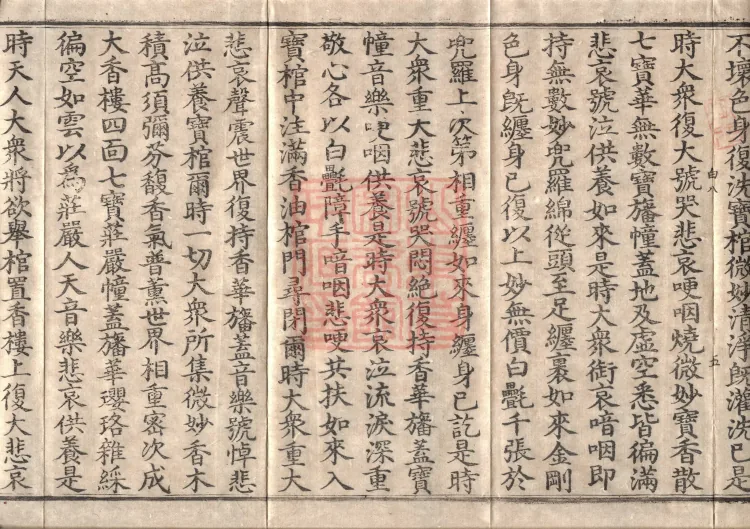 不壞色身復洗寶棺微妙清淨既灌洗已是
時大眾復大號哭悲哀哽咽燒微妙寶香散
七寶華無數寶旛幢蓋地及虛空悉皆徧滿
悲哀號泣供養如來是時大眾銜哀喑咽即
持無數妙兜羅綿從頭至足纏裹如來金剛
色身既纏身已復以上妙無價白㲲千張於
兜羅上次第相重纏如來身纏身已訖是時
大眾重大悲哀號哭悶絕復持香華旛蓋寶
幢音樂哽咽供養是時大眾哀泣流淚深重
敬心各以白㲲障手喑咽悲哽共扶如來入
寶棺中注滿香油棺門尋閉爾時大眾重大
悲哀聲震世界復持香華旛蓋音樂號悼悲
泣供養寶棺爾時一切大眾所集微妙香木
積高須彌芬馥香氣普薰世界相重密次成
大香樓四面七寶莊嚴幢蓋旛華瓔珞雜綵
徧空如雲以為莊嚴人天音樂悲哀供養是
時天人大眾將欲舉棺置香樓上復大悲哀
白八
五